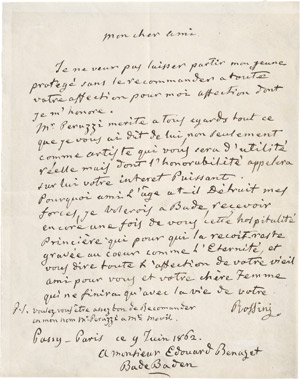 mon cher ami
Je ne veux pas laisser partir mon jeune
protégé sans le recommander a toute
votre affection pour moi affection dont
Je m'honore.
Mr Peruzzi merite a tous egards tout ce
que je vous ai dit de lui non seulement
comme artiste qui vous sera d'utilité
réelle mais dont l'honorabilité appelera
sur lui votre interet Puissant.
Pourquoi ami l'âge a t-il Détruit mes
forces, je Volerois a Bade recevoir
encore une fois de vous cette hospitalité
Princière qui pour qui la recoit reste
gravée au coeur comme l'Eternité, et
vous dire toute l'affection de votre vieil
ami pour vous et votre chère Femme
qui ne finira qu'avec la vie de votre
Rossini
P.S. voulez vous être assez bon de Recomander
en mon nom Mr Peruzzi a
Passy-Paris ce 9 Juin 1862.
A Monsieur Edouard Benazet
Bade Baden